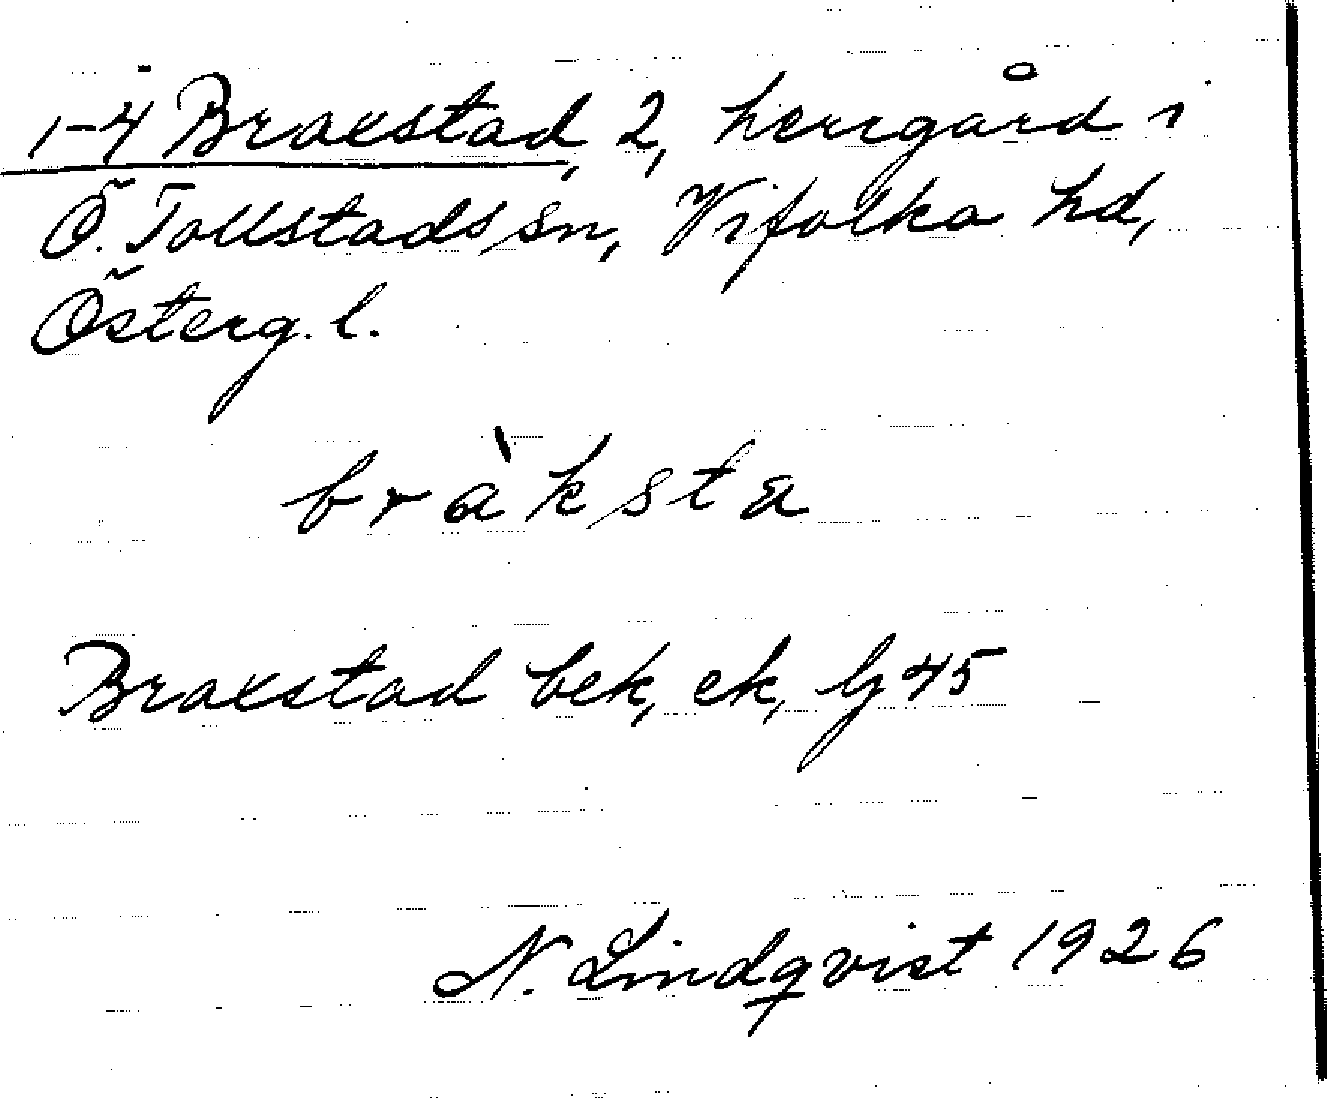 1-4 Braxstad, 2, herrgård i
Ö. Tollstads sn, Vifolka hd,
Österg. l.
bràksta
Braxstad bek, ek, lj 45
N. Lindqvist 1926